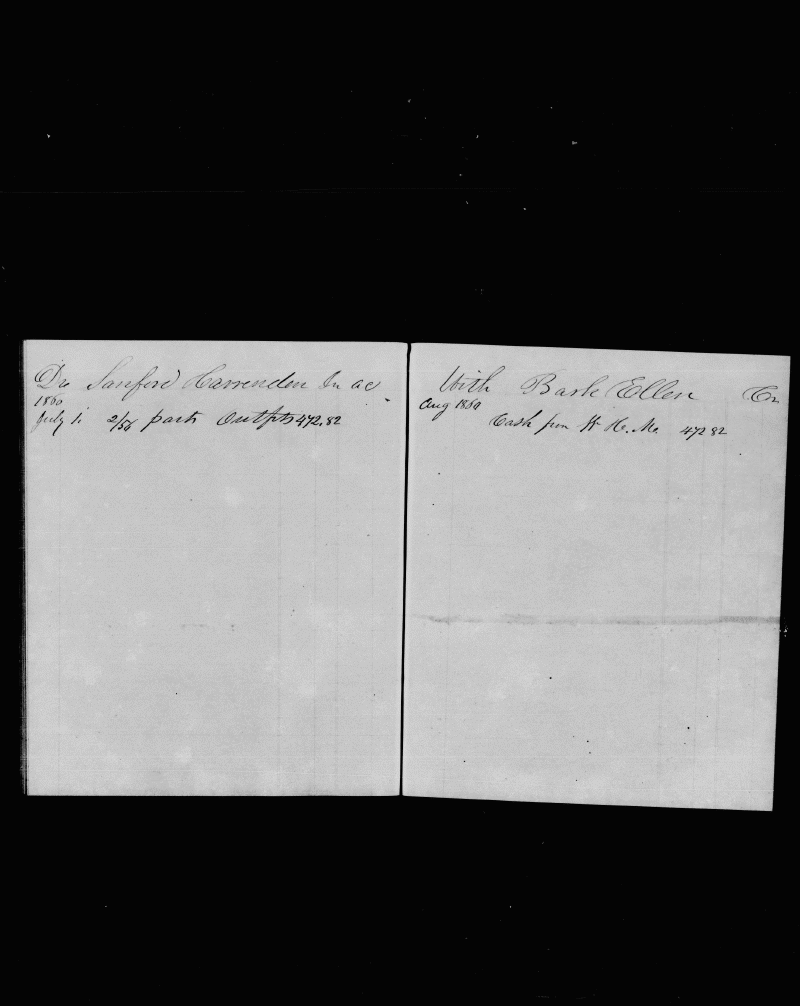 Dr Sanford Carrenden In ac
1860
July 1. 2/56 parts Outfits 472.82
With Bark Ellen Cr
Aug 1860
Cash from H H. Mc 472 82